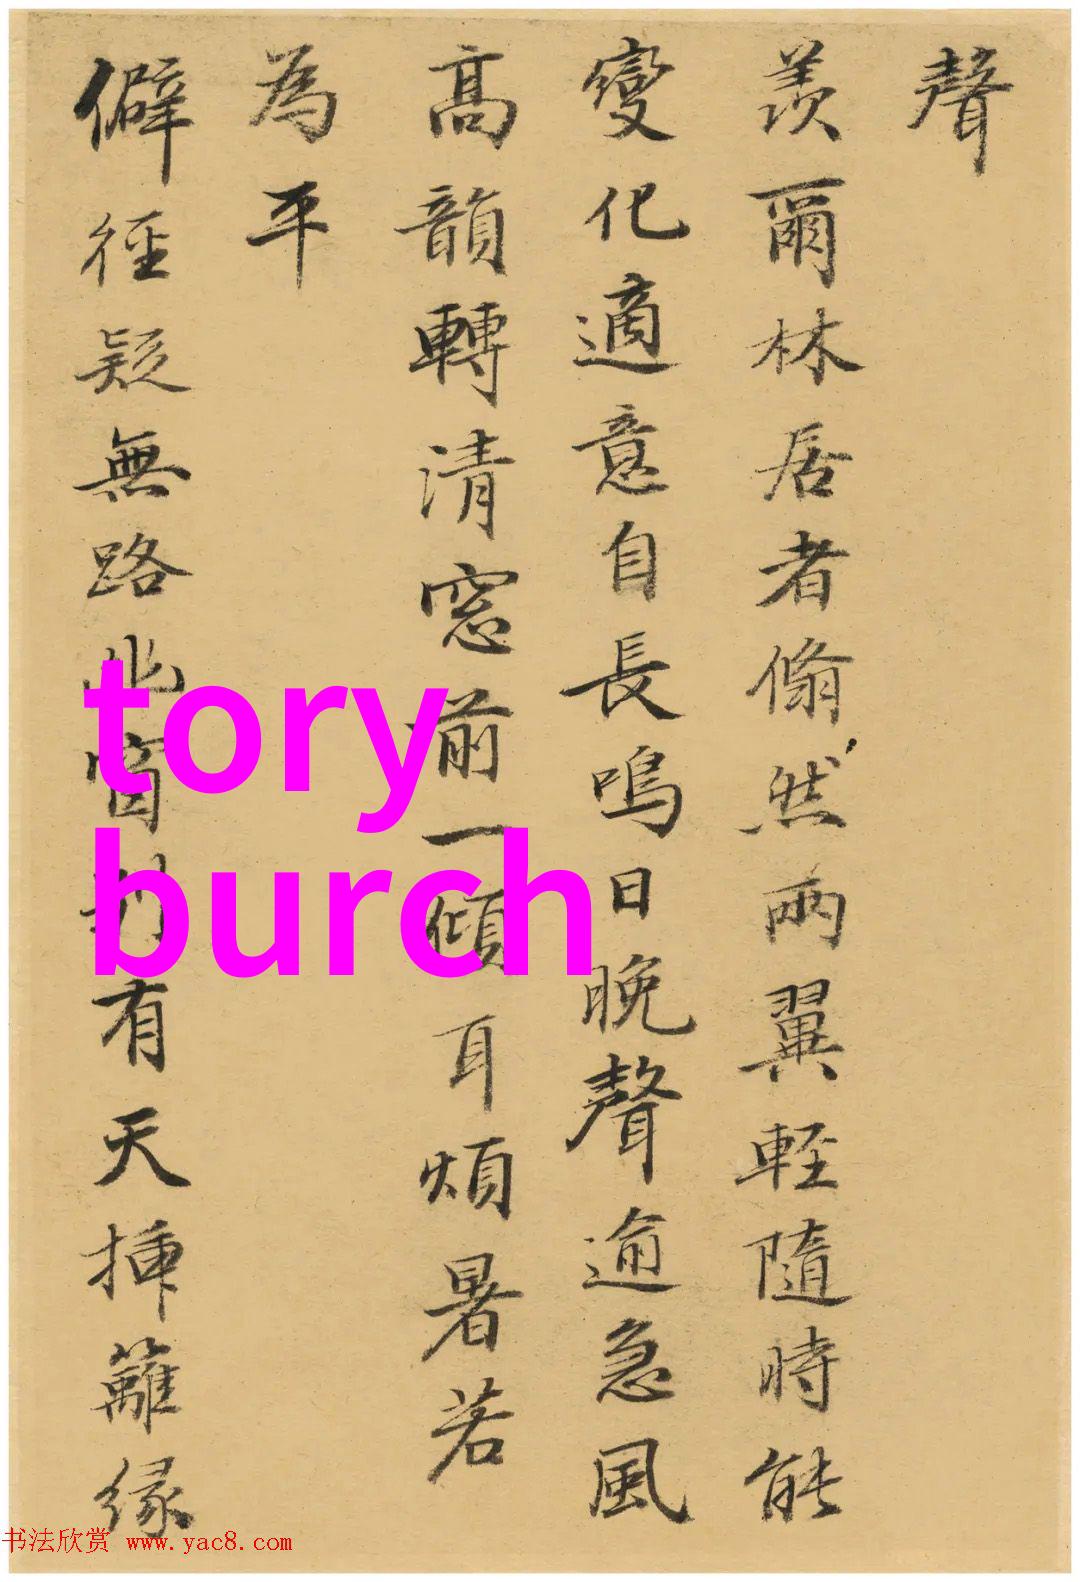 聲
羨爾林居者翛然兩翼輕隨時能
變化適意自長鳴日晚聲逾急風
高韻轉清窓前一傾耳煩暑若
為平
僻徑疑無路窗有天插籬緣
tory
burch
书法欣赏 www.yac8.com